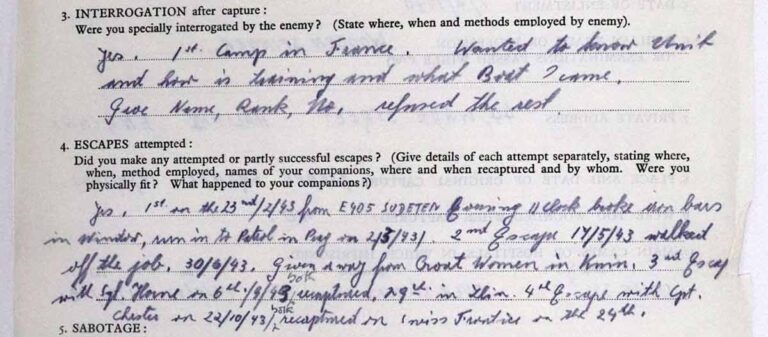 3. INTERROGATION after capture :
Were you specially interrogated by the enemy? (State where, when and methods employed by enemy).
Yes. 1st. Camp in France. Wanted to know Unit
and how is training and what Boat I came.
Give Name, Rank, No, refused the rest
4. ESCAPES attempted :
Did you make any attempted or partly successful escapes? (Give details of each attempt separately, stating where,
when, method employed, names of your companions, where and when recaptured and by whom. Were you
physically fit? What happened to your companions?)
Yes, 1st on the 23nd/2/43 from E405 SUDETEN 11 clock broke iren bars
in Window, run in to Patrol in on 2/3/43/. 2nd Escape 17/5/43 walked
off the job. 30/6/43. Given away from Croat Women in Knin. 3rd Escap
with Sgt. Horne on 6th./9/43, both recaptured, 29th. in Zlin. 4th Escape with Cpt.
Chester on 22/10/43/ both recaptured on Swiss Frontier on the 24th.
5. SABOTAGE :